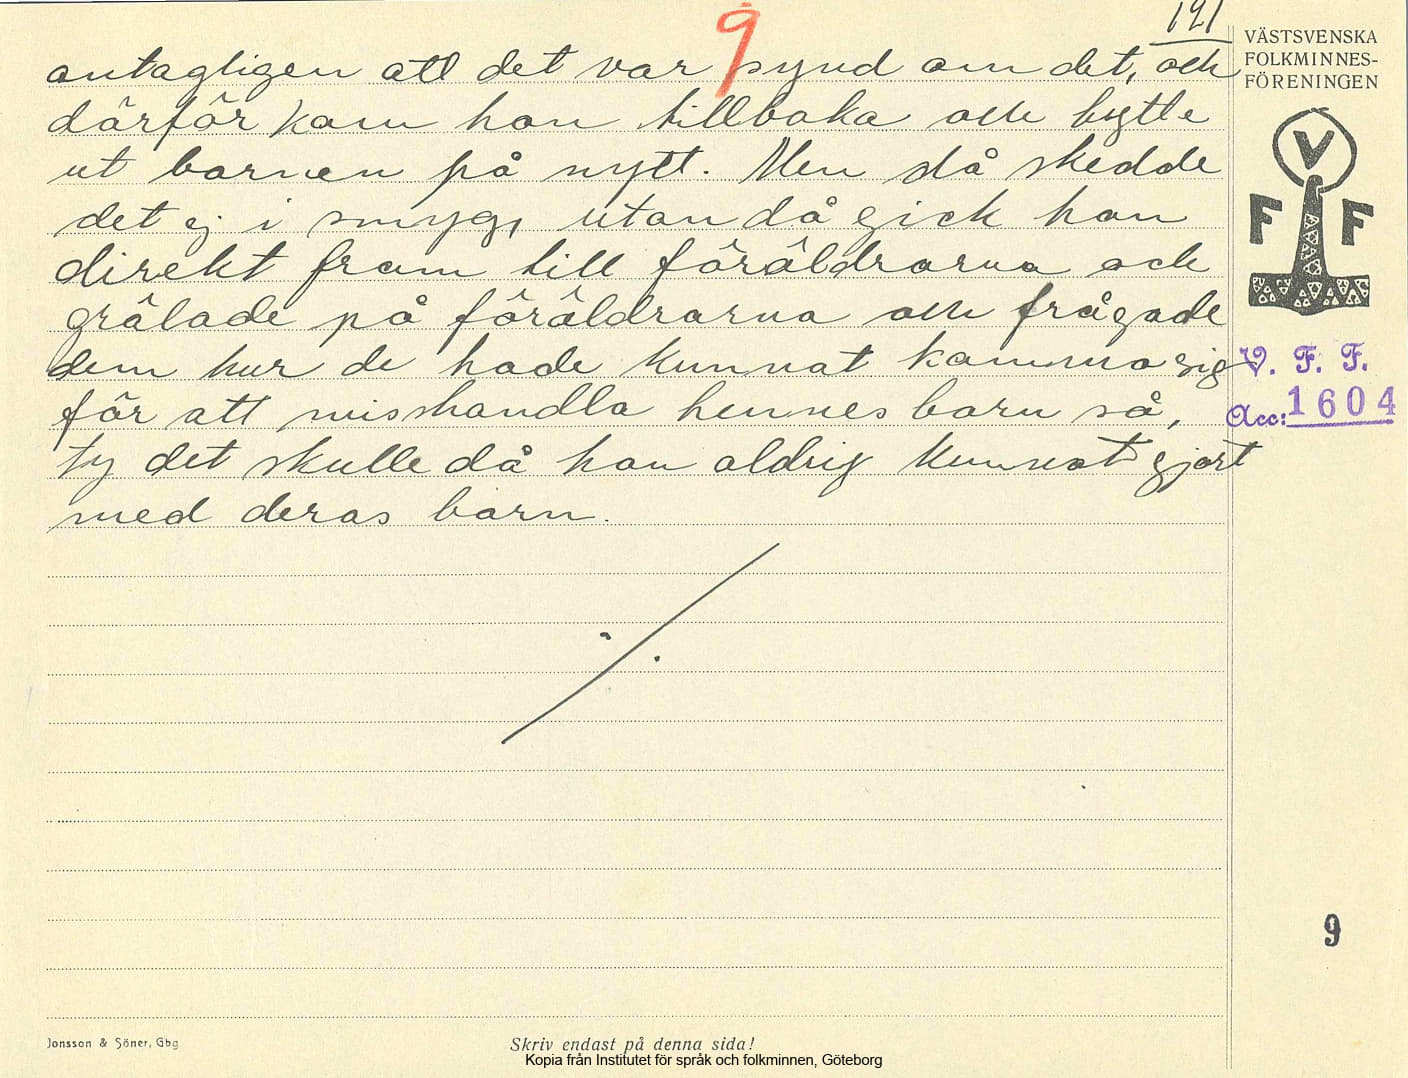 9
121
antagligen att det var synd om det, och
därför kom hon tillbaka och bytte
ut barnen på nytt. Men då skedde
det ej i smyg, utan då gick hon
direkt fram till föräldrarna och
grälade på föräldrarna och frågade
dem hur de hade kunnat komma sig
för att misshandla hennes barn så,
ty det skulle då hon aldrig kunnat gjort
med deras barn.
VÄSTSVENSKA
FOLKMINNES-
FÖRENINGEN
V
F F
V. F. F.
Acc: 1604
9
Jonsson & Söner, Gbg
Skriv endast på denna sida!
Kopia från Institutet för språk och folkminnen, Göteborg